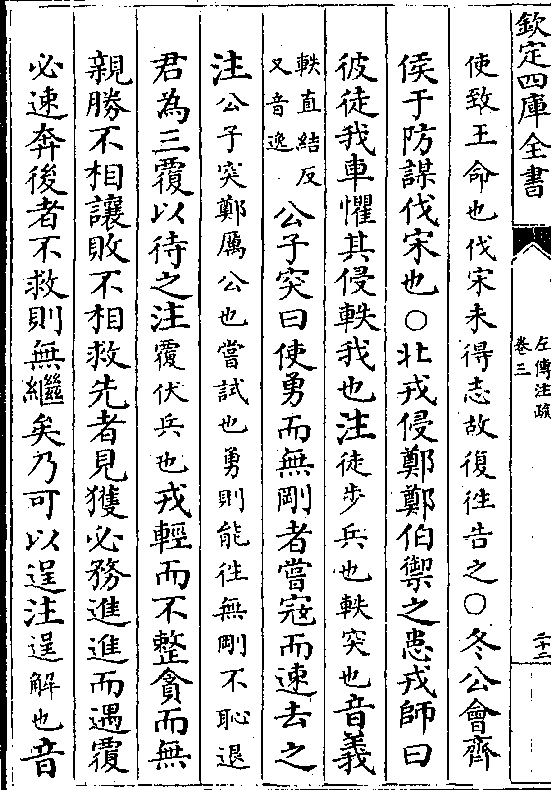 欽定四庫全書
左傳注疏
卷三
二十二
使致王命也伐宋未得志故復徃告之○冬公會齊
侯于防謀伐宋也○北戎侵鄭鄭伯禦之患戎師曰
彼徒我車懼其侵軼我也注徒步兵也軼突也音義
軼直結反
又音逸
公子突曰使勇而無剛者嘗宼而速去之
注公子突鄭厲公也嘗試也勇則能徃無剛不恥退
君為三覆以待之注覆伏兵也戎輕而不整貪而無
親勝不相讓敗不相救先者見獲必務進進而遇覆
必速奔後者不救則無繼矣乃可以逞注逞解也音